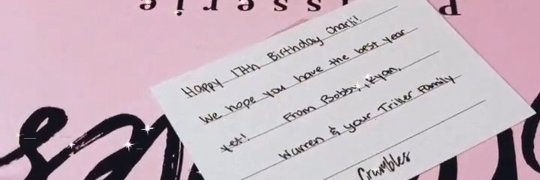 Patisserie
Happy 17th Birthday Charli!
We hope you have the best year
yet! From Bobby, Ryan,
Warren & your Triller Family
Crumbles